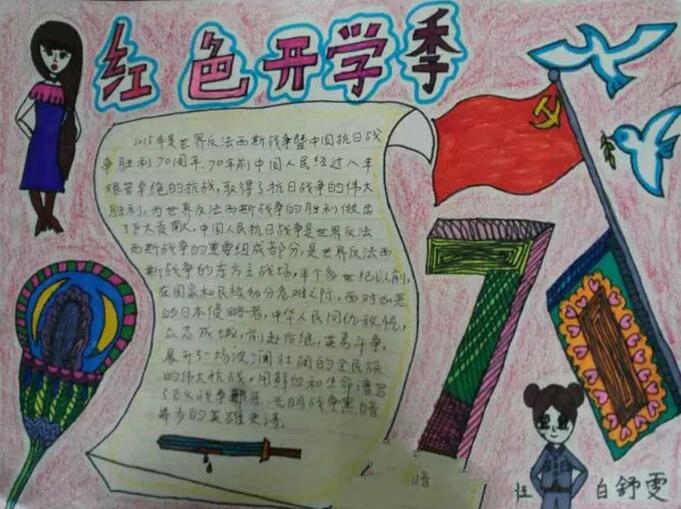 红色开学季
2015年是世界反法西斯战争暨中国抗日战
争胜利70周年、70年前中国人民经过八年
艰苦卓绝的抗战,取得了抗日战争的伟大
胜利,为世界反法西斯战争的胜利做出
巨大贡献,中国人民抗日战争是世界反法
西斯战争的重要组成部分,是世界反法西
斯战争的东方主战场,半个多世纪以前,
在国家和民族万分危难之际,面对凶恶
的日本侵略者,中华人民同仇敌忾,
众志成城,前赴后继,英勇斗争,
展开了一场波澜壮阔的全民族
的伟大抗战,用鲜血和生命谱写
了正义战争 邪恶、光明战争黑暗
步的英雄史诗。
7
白舒雯